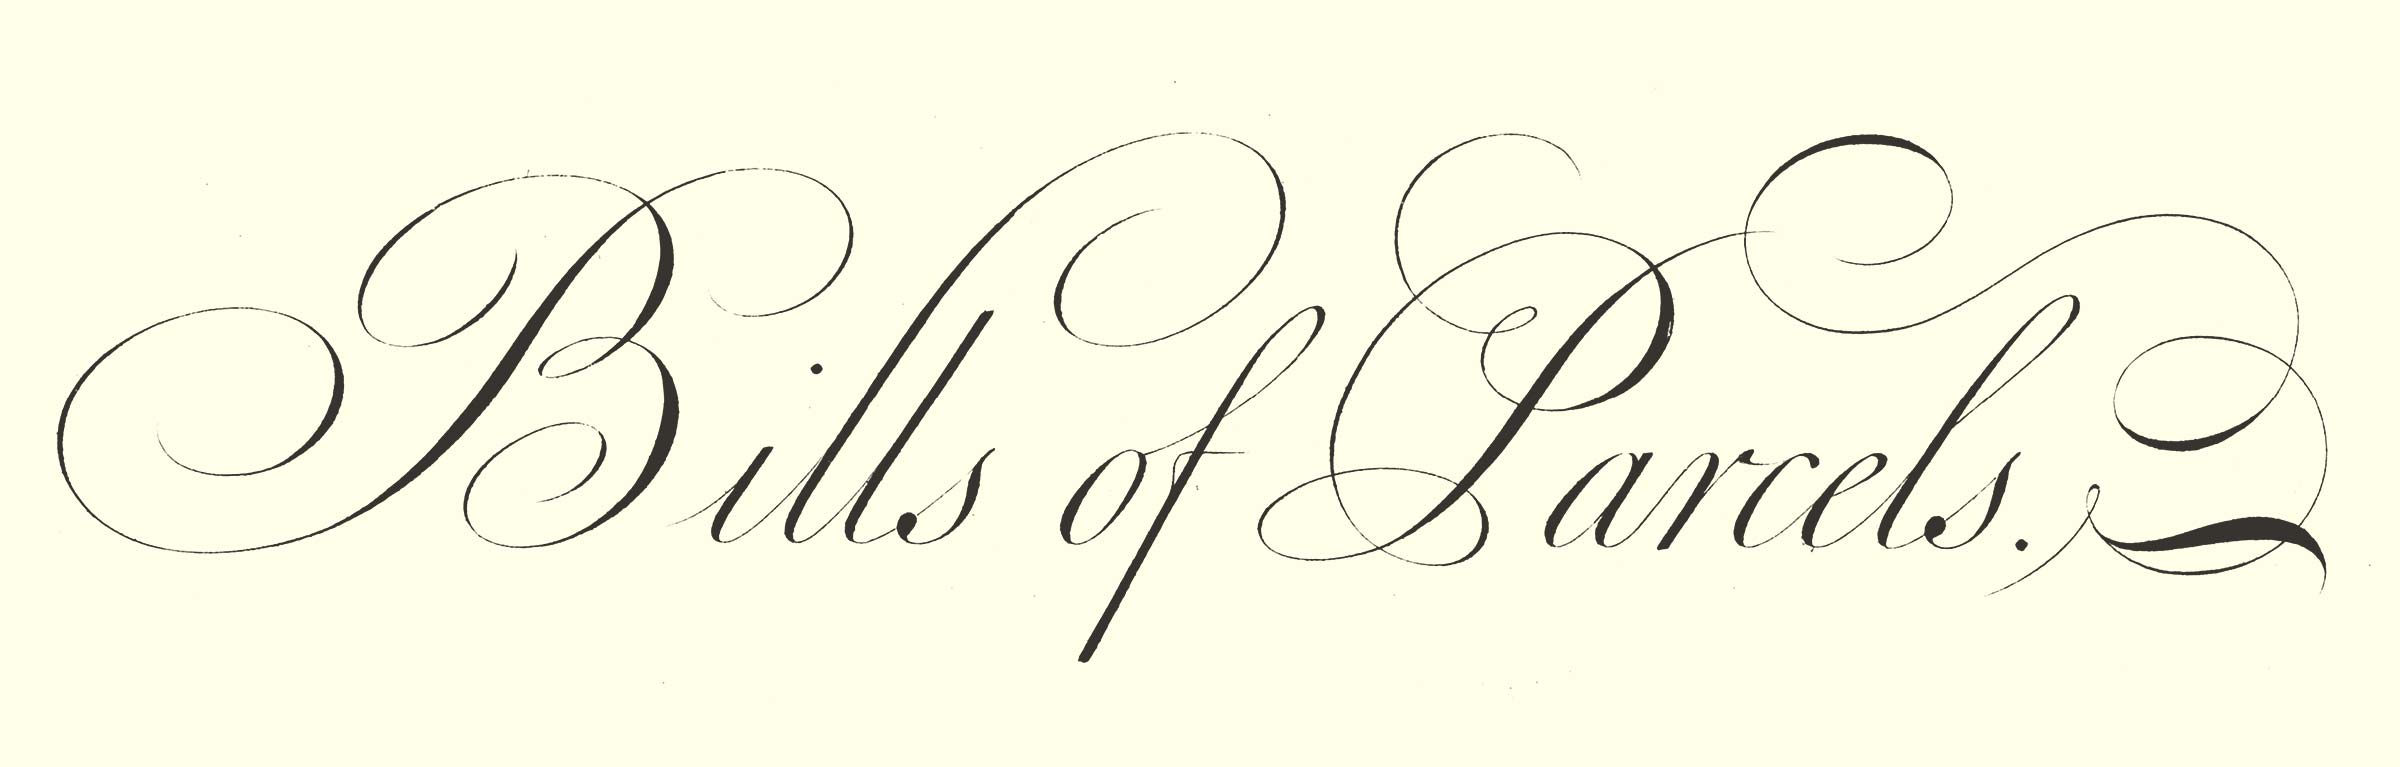 Bills of Parcels.